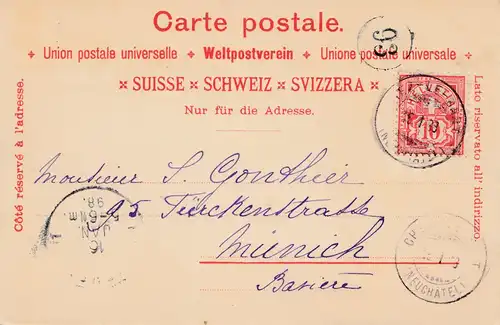 Carte postale.
39
+ Union postale universelle + Weltpostverein + Unione postale universale +
× SUISSE × SCHWEIZ × SVIZZERA ×
Nur für die Adresse.
Côté réservé à l'adresse.
Lato riservato all' indirizzo.
HELVETIA
10
Monsieur S. Gonthier
25 Türckenstrasse
Münich
Bavière
16
JAN.
5-6 Nm
98.
(NEUCHATEL)